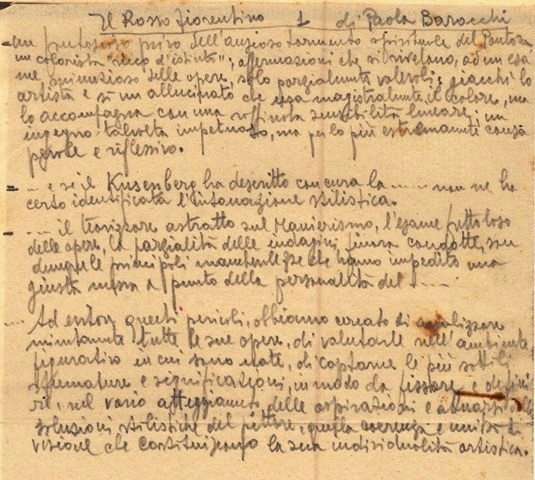 Il Rosso fiorentino 1 di Paola Barocchi
un frettoloso privo dell'ansioso tormento spirituale del Pontormo
un colorista "ricco d'istinto"; affermazioni che si rivelano, ad un esa
me minuzioso delle opere, solo parzialmente valevoli; giacché lo
artista è sì un allucinato che usa magistralmente il colore, ma
lo accompagna con una raffinata sensibilità lineare; un
ingegno talvolta impetuoso, ma per lo più estremamente consa
pevole e riflessivo.
... e se il Kusenberg ha descritto con cura la ...... non ne ha
certo identificata l'intonazione stilistica.
.... il teorizzare astratto sul Manierismo, l'esame frettoloso
delle opere, la parzialità delle indagini finora condotte, son
dunque le principali manchevolezze che hanno impedito una
giusta messa a punto della personalità del .....
.... Ad evitare questi pericoli, abbiamo cercato di analizzare
minutamente tutte le sue opere, di valutarle nell'ambiente
figurativo in cui sono nate, di captarne le più sottili
sfumature e significazioni, in modo da fissare e defini
re, nel vario atteggiamento delle aspirazioni e
soluzioni stilistiche del pittore, quella coerenza e unità di
visione che costituiscono la sua individualità artistica.